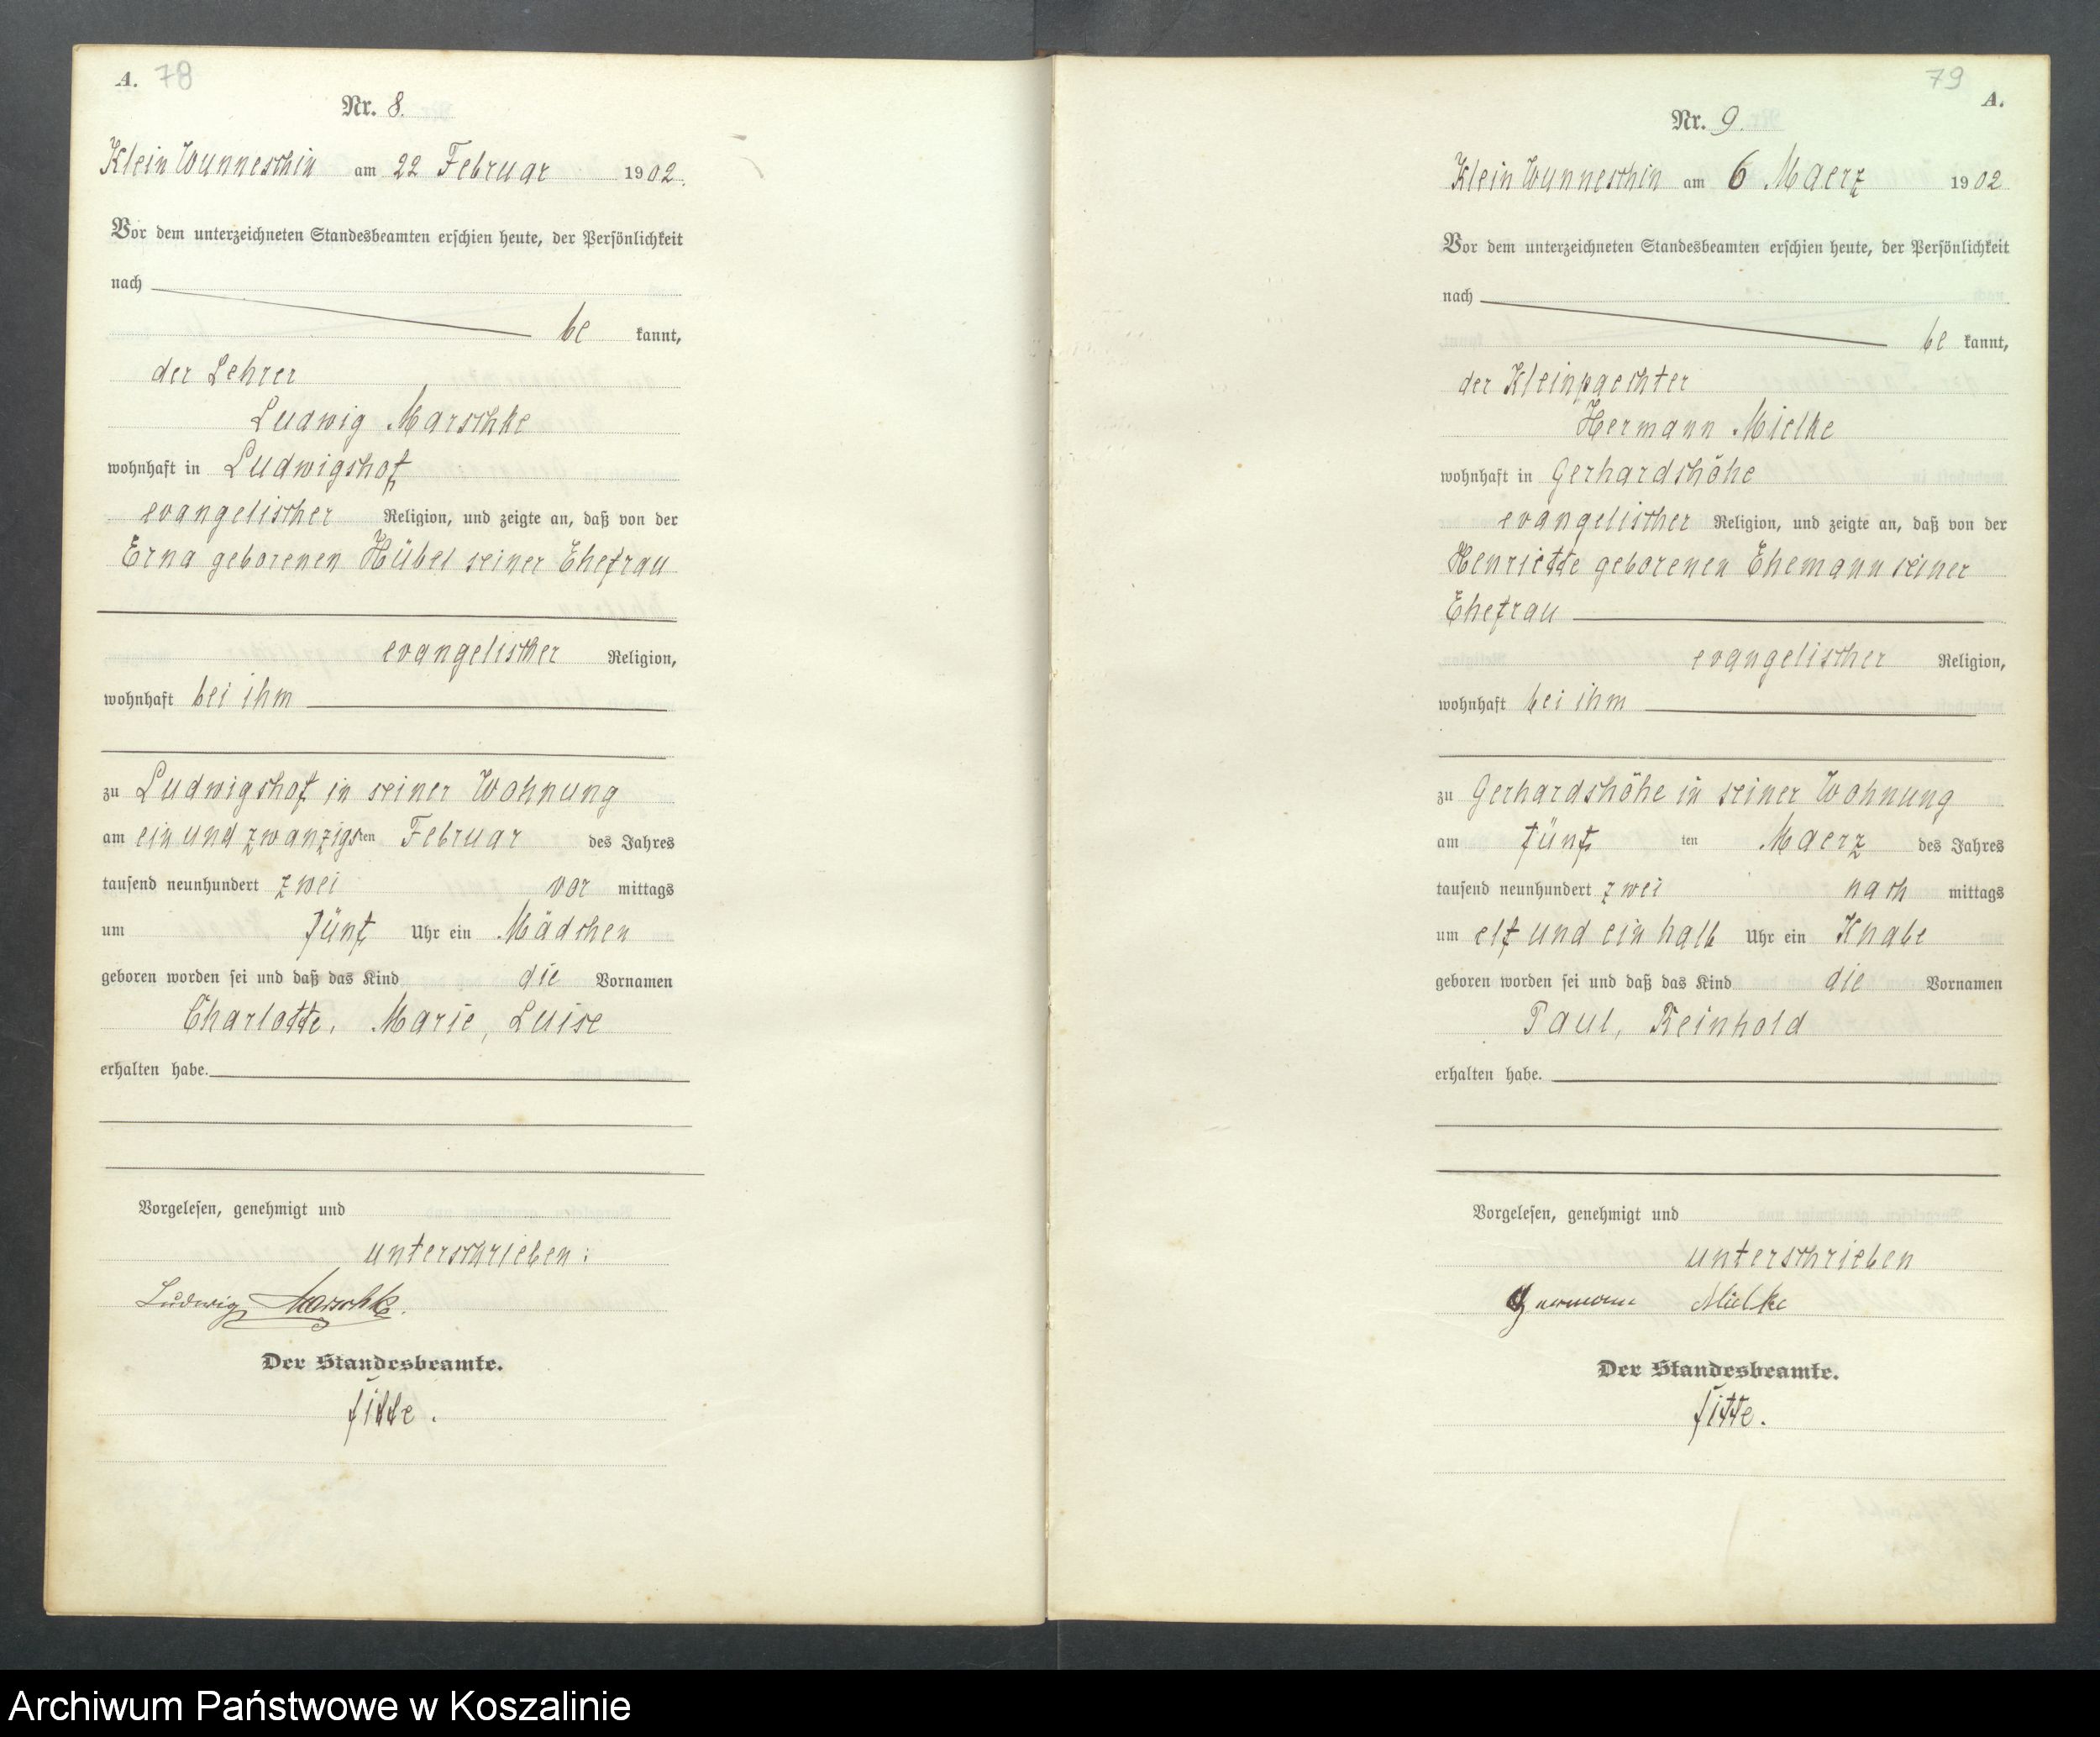 A. 78
Nr. 8.
Klein Wunneschin am 22 Februar 1902.
Vor dem unterzeichneten Standesbeamten erschien heute, der Persönlichkeit
nach
be kannt,
der Lehrer
Ludwig Marschke
wohnhaft in Ludwigshof
evangelischer Religion, und zeigte an, daß von der
Erna geborenen Hübel seiner Ehefrau
evangelischer Religion,
wohnhaft bei ihm
zu Ludwigshof in seiner Wohnung
am ein und zwanzigsten Februar des Jahres
tausend neunhundert zwei vor mittags
um fünf Uhr ein Mädchen
geboren worden sei und daß das Kind die Vornamen
Charlotte, Marie, Luise
erhalten habe.
Vorgelesen, genehmigt und
unterschrieben:
Ludwig Marschke.
Der Standesbeamte.
Fitte.
79 A.
Nr. 9.
Klein Wunneschin am 6 Maerz 1902
Vor dem unterzeichneten Standesbeamten erschien heute, der Persönlichkeit
nach
be kannt,
der Kleinpaechter
Hermann Mielke
wohnhaft in Gerhardshöhe
evangelischer Religion, und zeigte an, daß von der
Henriette geborenen Ehemann seiner
Ehefrau
evangelischer Religion,
wohnhaft bei ihm
zu Gerhardshöhe in seiner Wohnung
am fünf ten Maerz des Jahres
tausend neunhundert zwei nach mittags
um elf und ein halb Uhr ein Knabe
geboren worden sei und daß das Kind die Vornamen
Paul, Reinhold
erhalten habe.
Vorgelesen, genehmigt und
unterschrieben
Hermann Mielke
Der Standesbeamte.
Fitte.
Archiwum Państwowe w Koszalinie